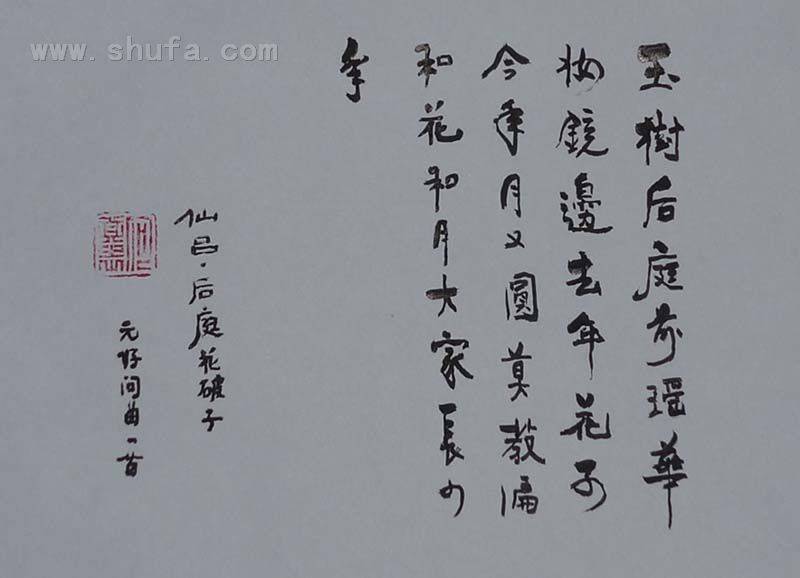 www.shufa.com
玉樹后庭前瑶華
妝鏡邊去年花不
今年月又圓莫教偏
和花和月大家長少
年
仙吕·后庭花破子
元好问曲一首